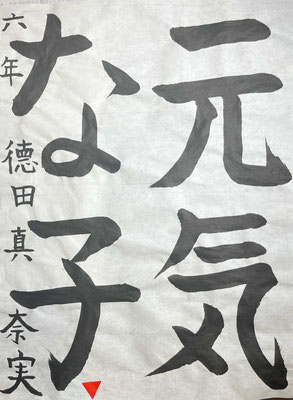 元気
な子
六年 徳田真奈実